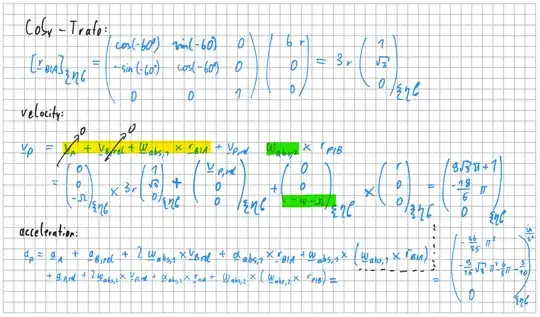 CoSy-Trafo:
[r_BIA]_ξηζ = ( cos(-60°) sin(-60°) 0 ; -sin(-60°) cos(-60°) 0 ; 0 0 1 ) ( 6 r ; 0 ; 0 ) = 3 r ( 1 ; √3 ; 0 )_ξηζ
velocity:
v_P = v_A + v_B,rel + ω_abs,1 × r_BIA + v_P,rel ω_abs,2 × r_PIB
= ( 0 ; 0 ; -Ω )_ξηζ × 3r ( 1 ; √3 ; 0 )_ξηζ + ( v_P,rel ; 0 ; 0 )_ξηζ + ( 0 ; 0 ; -ω-Ω )_ξηζ × ( r ; 0 ; 0 )_ξηζ = ( 3√3 π + 1 ; -18/5 π ; 0 )_ξηζ
acceleration:
a_P = a_A + a_B,rel + 2 ω_abs,1 × v_B,rel + α_abs,1 × r_BIA + ω_abs,1 × ( ω_abs,1 × r_BIA )
+ a_P,rel + 2 ω_abs,2 × v_P,rel + α_abs,2 × r_PIB + ω_abs,2 × ( ω_abs,2 × r_PIB ) =